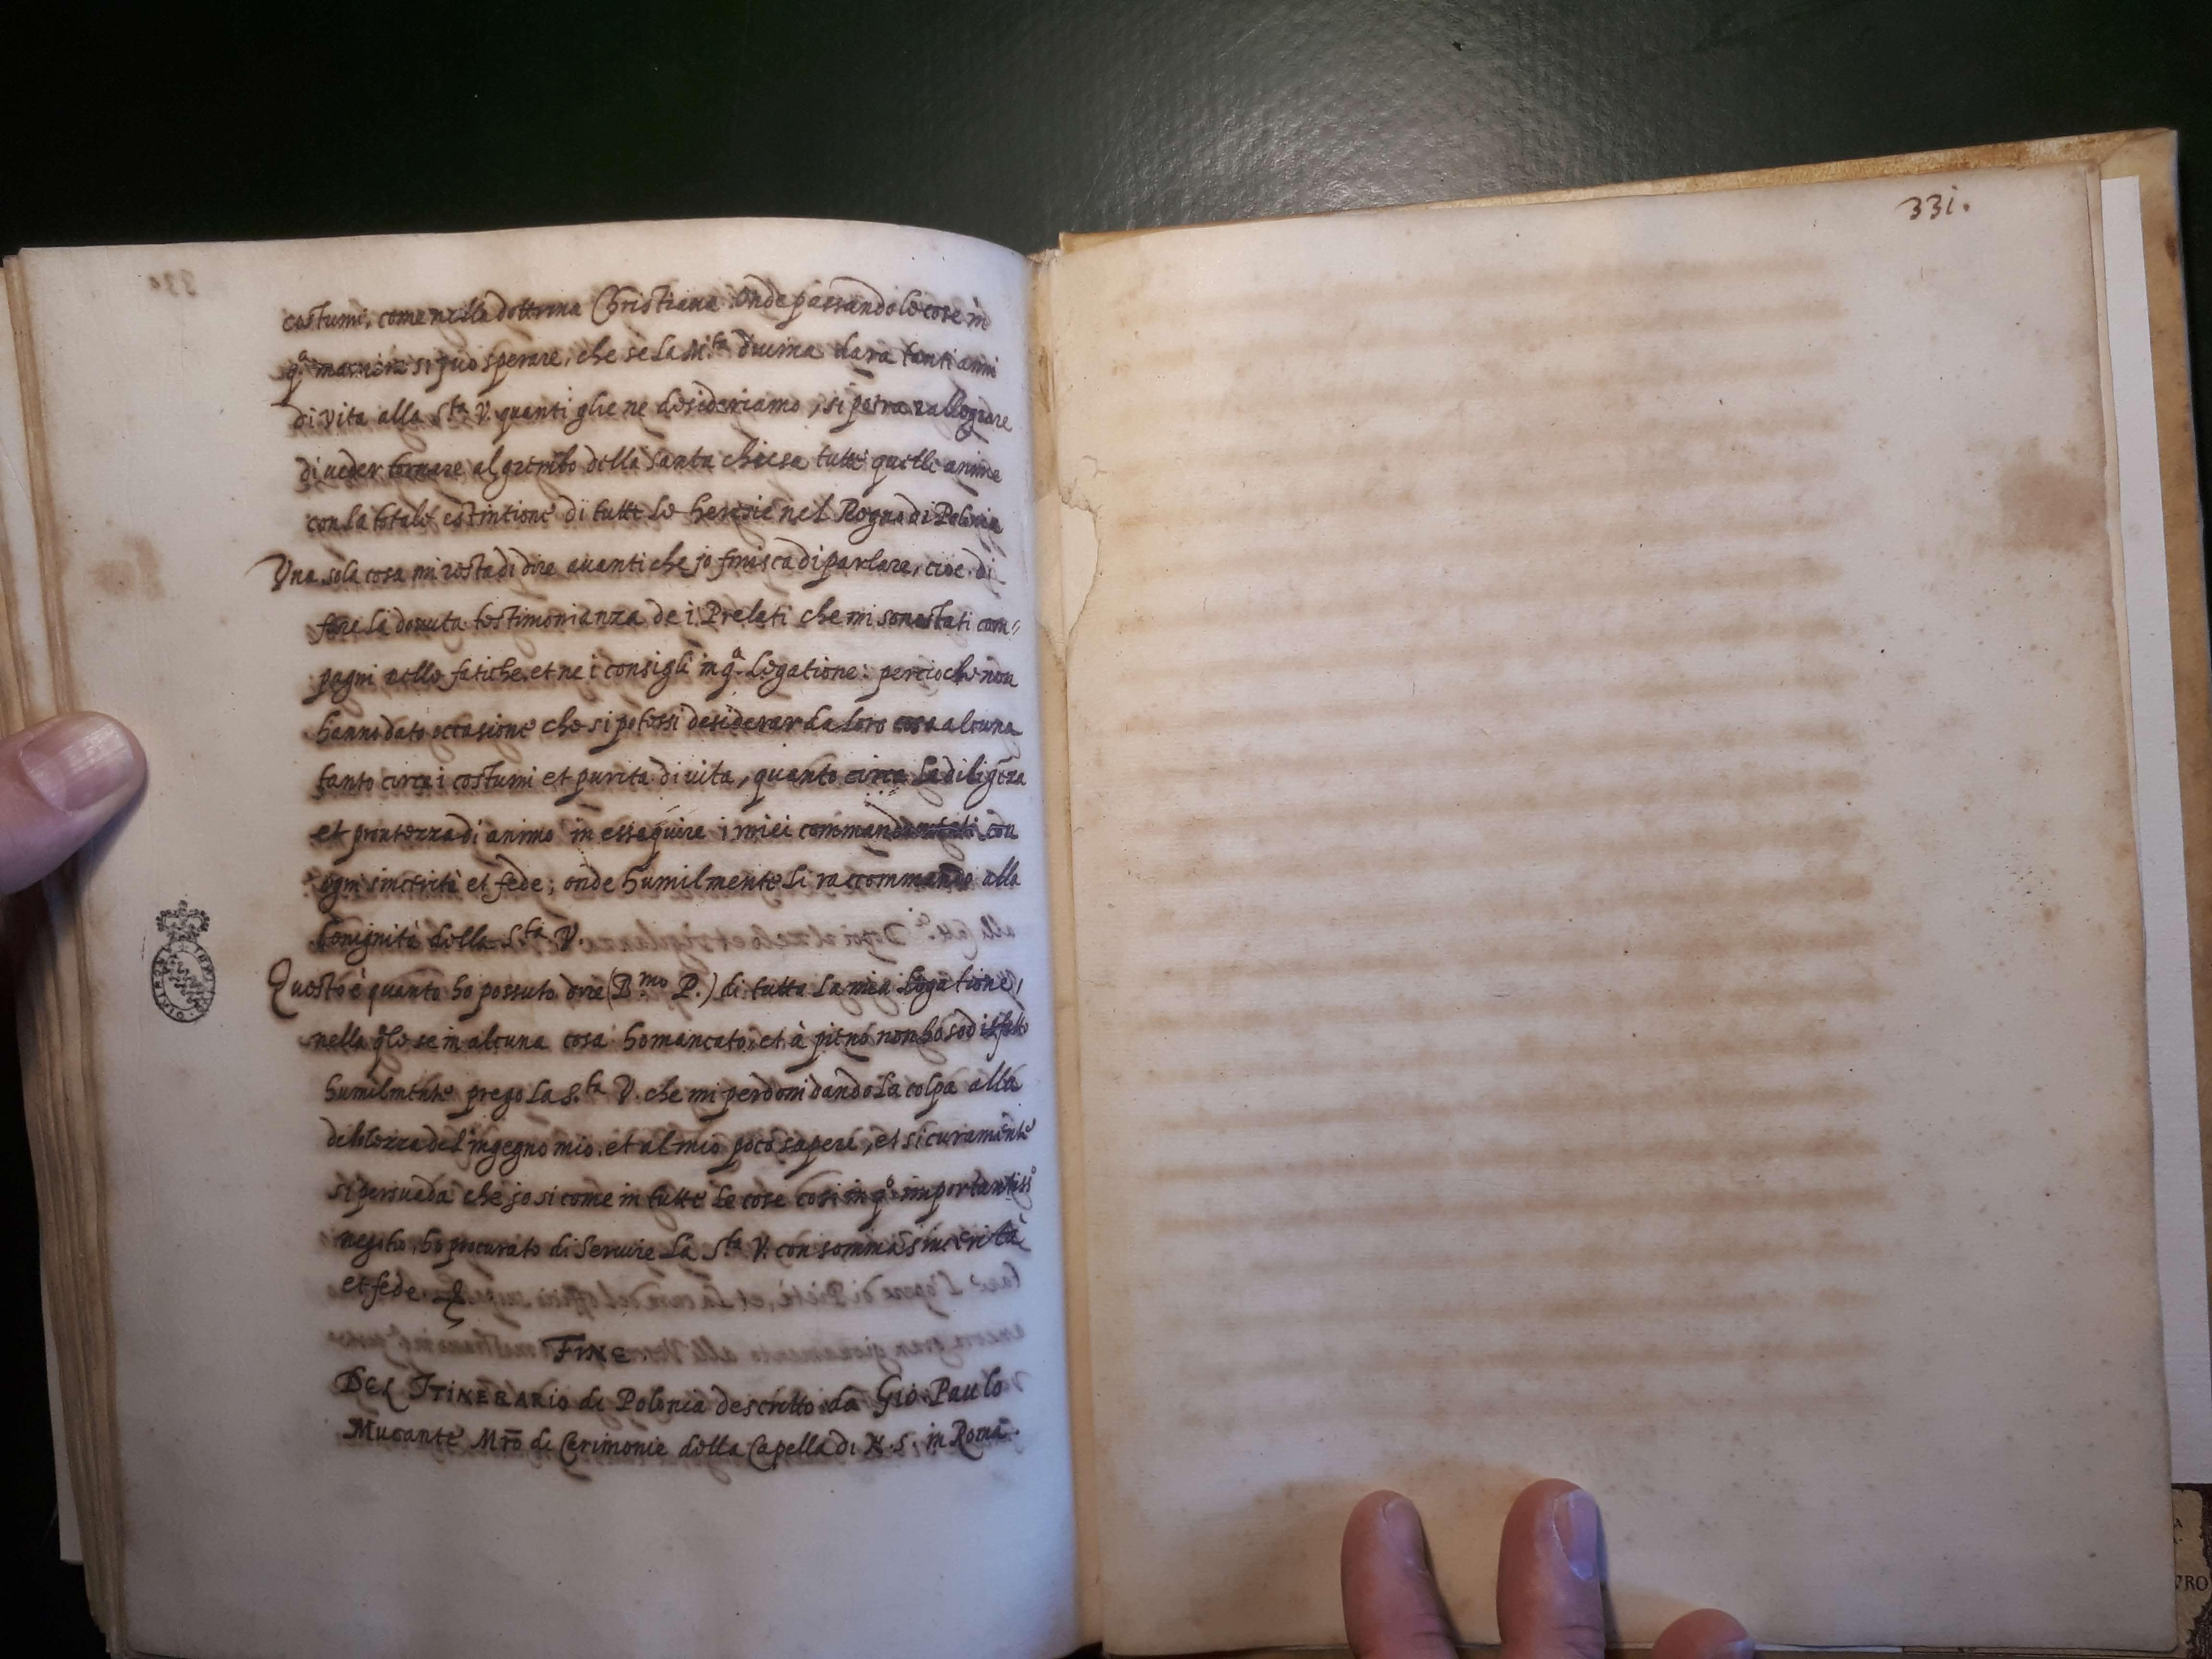 costumi, come nella dottrina Christiana. Onde passando le cose in
q.ª maniera si può sperare, che se la M.tà diuina dara tanti anni
di vita alla S.tà V. quanti glie ne desideriamo, si potra rallegrare
di ueder tornare al grembo della Santa chiesa tutte quelle anime
con la totale estintione di tutte le heresie nel Regno di Polonia
Una sola cosa mi resta di dire auanti che jo finisca di parlare, cioe di
fare la douuta testimonianza de i Prelati che mi sono stati com=
pagni nelle fatiche et ne i consigli in q.ª legatione: percioche non
hanno dato occasione che si potessi desiderar da loro cosa alcuna
tanto circa i costumi et purita di uita, quanto circa la diligēza
et prontezza di animo in essequire i miei commandamenti con
ogni sincerità et fede; onde humilmente li raccommando alla
benignità della S.tà V.
Questo è quanto ho possuto dire (B.mo P.) di tutta la mia legatione,
nella q̄le se in alcuna cosa ho mancato, et à pieno non ho sodisfatto
humilmente prego la S.tà V. che mi perdoni dando la colpa alla
debolezza del'ingegno mio, et al mio poco sapere, et sicuramente
si persuada che jo si come in tutte le cose cosi in q.º importantiss.º
negotio, ho procurato di Seruire la S.tà V. con somma sincerità
et fede
FINE
DEL ITINERARIO di Polonia descritto da Gio. Paulo
Mucante M̄ro di Cerimonie della Capella di N. S. in Roma.
331.